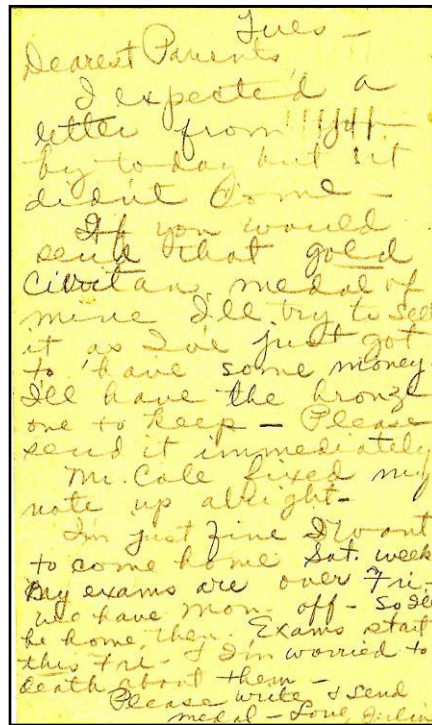 Tues —
Dearest Parents,
I expected a
letter from !!!!!!
by today but it
didn't come —
If you would
send that gold
Civitan medal of
mine I'll try to sell
it as I've just got
to have some money.
I'll have the bronze
one to keep — Please
send it immediately
Mr. Cole fixed my
note up allright —
I'm just fine I want
to come home Sat. week
My exams are over Fri —
we have Mon. off — So I'll
be home then. Exams start
this Fri — & I'm worried to
death about them —
Please write & send
medal — Love Julia